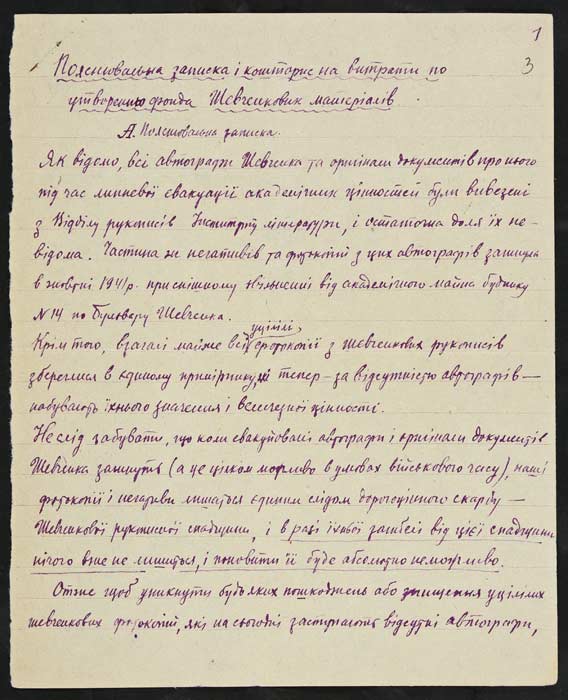 1
3
Пояснювальна записка і кошторис на витрати по
утворенню фонда Шевченкових матеріалів.
А. Пояснювальна записка.
Як відомо, всі автографи Шевченка та оригінали документів про нього
під час липневої евакуації академічних цінностей були вивезені
з Відділу рукописів Інституту літератури, і остаточна доля їх не-
відома. Частина ж негативів та фотокопій з цих автографів загинула
в жовтні 1941 р. при спішному звільненні від академічного майна будинку
№ 14 по Бульвару Шевченка.
уцілілі,
Крім того, взагалі майже всі фотокопії з шевченкових рукописів
збереглися в єдиному примірнику, й тепер – за відсутністю автографів –
набувають їхнього значення і величезної цінності.
Не слід забувати, що коли евакуйовані автографи і оригінали документів
Шевченка загинуть (а це цілком можливо в умовах військового часу), наші
фотокопії і негативи лишаться єдиним слідом дорогоцінного скарбу –
Шевченкової рукописної спадщини, і в разі їхньої загибелі від цієї спадщини
нічого вже не лишиться, і поновити її буде абсолютно неможливо.
Отже щоб уникнути будь-яких пошкоджень або знищення уцілілих
шевченкових фотокопій, які на сьогодні заступають відсутні автографи,